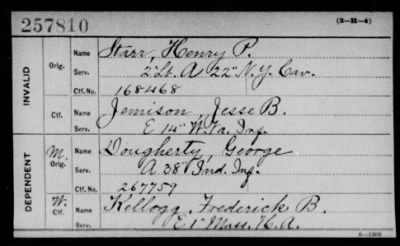 257810
(3-H-4)
INVALID
Orig.
Name Starr, Henry P.
Serv. 2" Lt. A 22" N.Y. Cav.
Ctf. No. 168468
Ctf.
Name Jemison, Jesse B.
Serv. E 14" W.Va. Inf.
DEPENDENT
M.
Orig.
Name Dougherty, George
Serv. A 38" Ind. Inf.
Ctf. No. 267759
W.
Ctf.
Name Kellogg, Frederick B.
Serv. E 1" Mass. H.A.